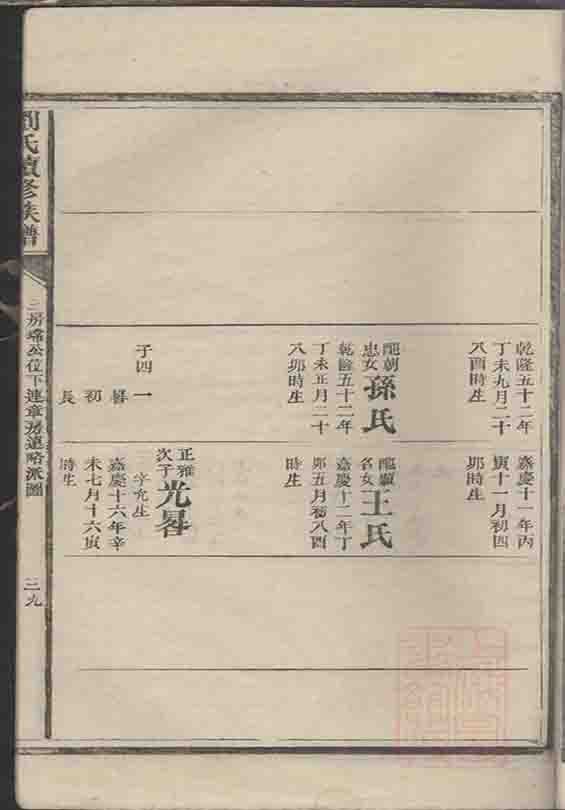 乾隆五十二年
丁未九月二十
八酉時生
配朝
忠女
孫氏
乾隆五十二年
丁未正月二十
八卯時生
子四 一
初
長
嘉慶十一年丙
寅十一月初四
卯時生
配顯
名女
王氏
嘉慶十二年丁
卯五月初八酉
時生
正雅
次子
光晷
字允生
嘉慶十六年辛
未七月十六寅
時生
氏續修族譜
三房公位下連章房運略派圖
三九